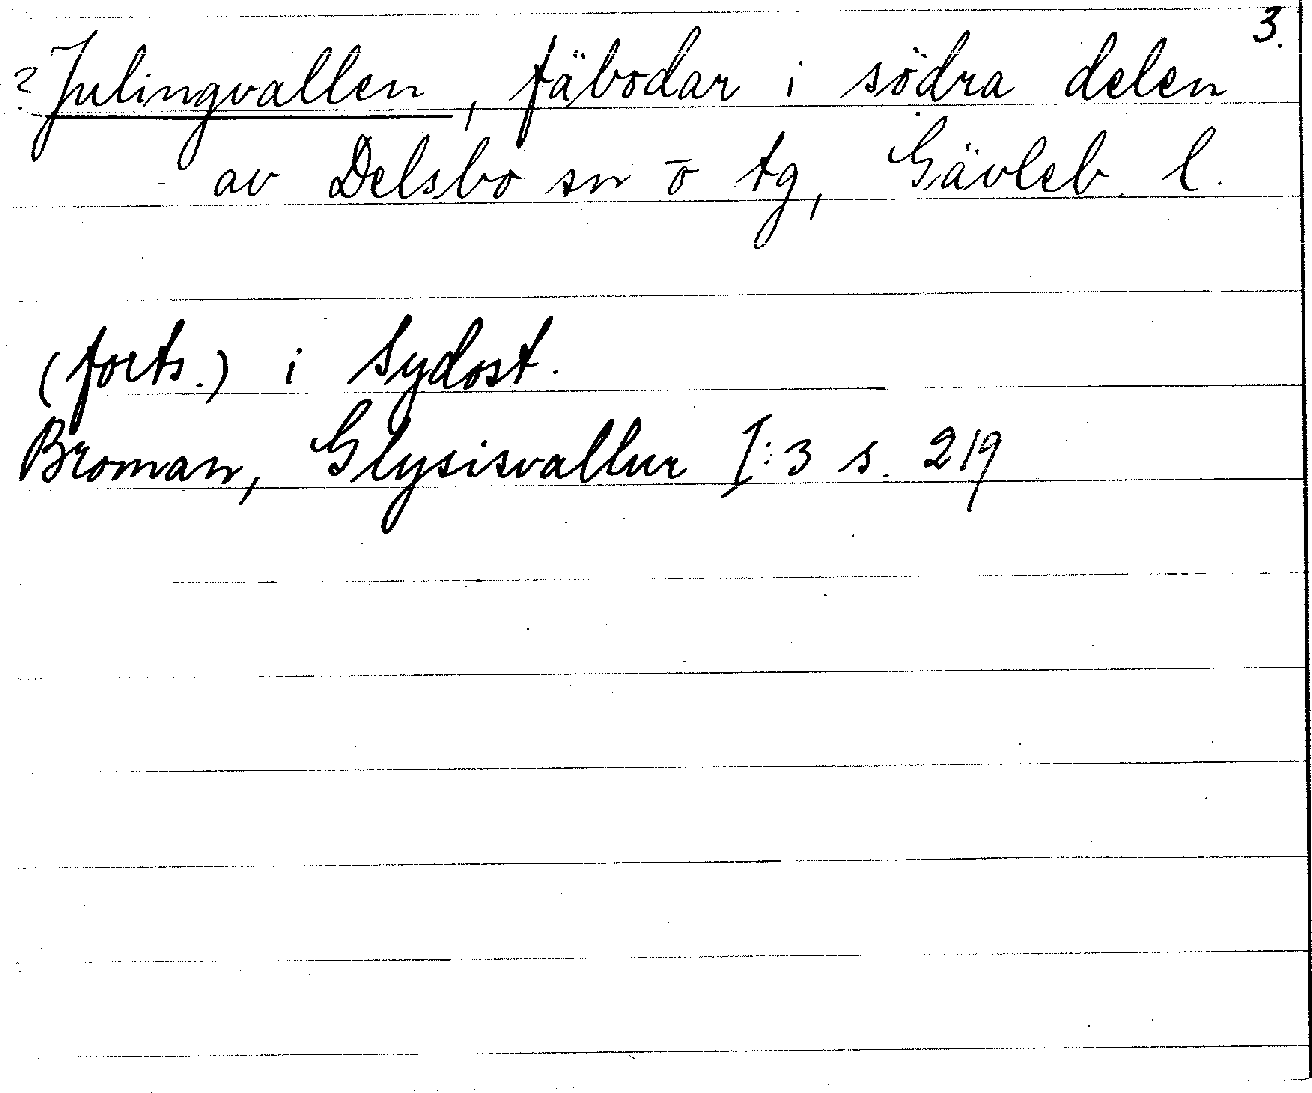 3.
? Julingvallen, fäbodar i södra delen
av Delsbo sn o tg, Gävleb. l.
(forts.) i Sydost.
Broman, Glysisvallur I:3 s. 219